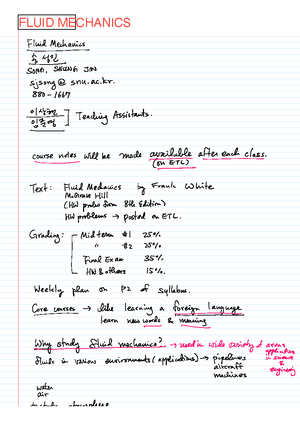 FLUID MECHANICS
Fluid Mechanics
송 성진
SONG, SEUNG JIN
sjsong@snu.ac.kr.
880-1667
Teaching Assistants.
course notes will be made available after each class.
(on ETL)
Text: Fluid Mechanics by Frank White
McGraw Hill
(HW probs from 8th Edition)
HW problems → posted on ETL.
Grading: Midterm #1 25%
" #2 25%
Final Exam 35%
HW & others 15%.
Weekly plan on P2 of syllabus.
Core courses → like learning a foreign language
learn new words & meaning
Why study fluid mechanics? → used in wide variety of areas
application in science & engineering
fluids in various environments (applications) → pipelines
aircraft
machines
water
air